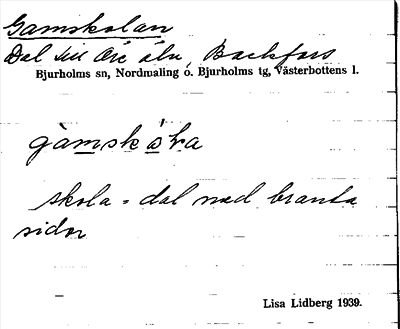 Gamskolan
Dal till Öre älv, Backfors
Bjurholms sn, Nordmaling o. Bjurholms tg, Västerbottens l.
skola = dal med branta
sidor
Lisa Lidberg 1939.